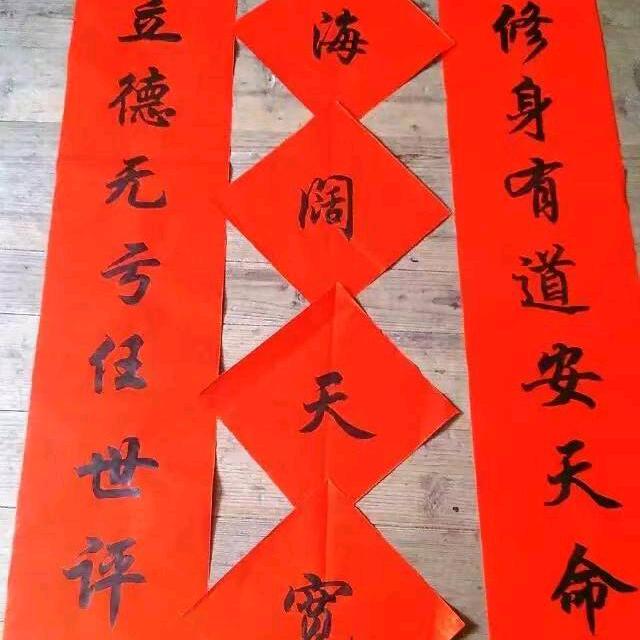 修身有道安天命
立德无亏任世评
海阔天宽